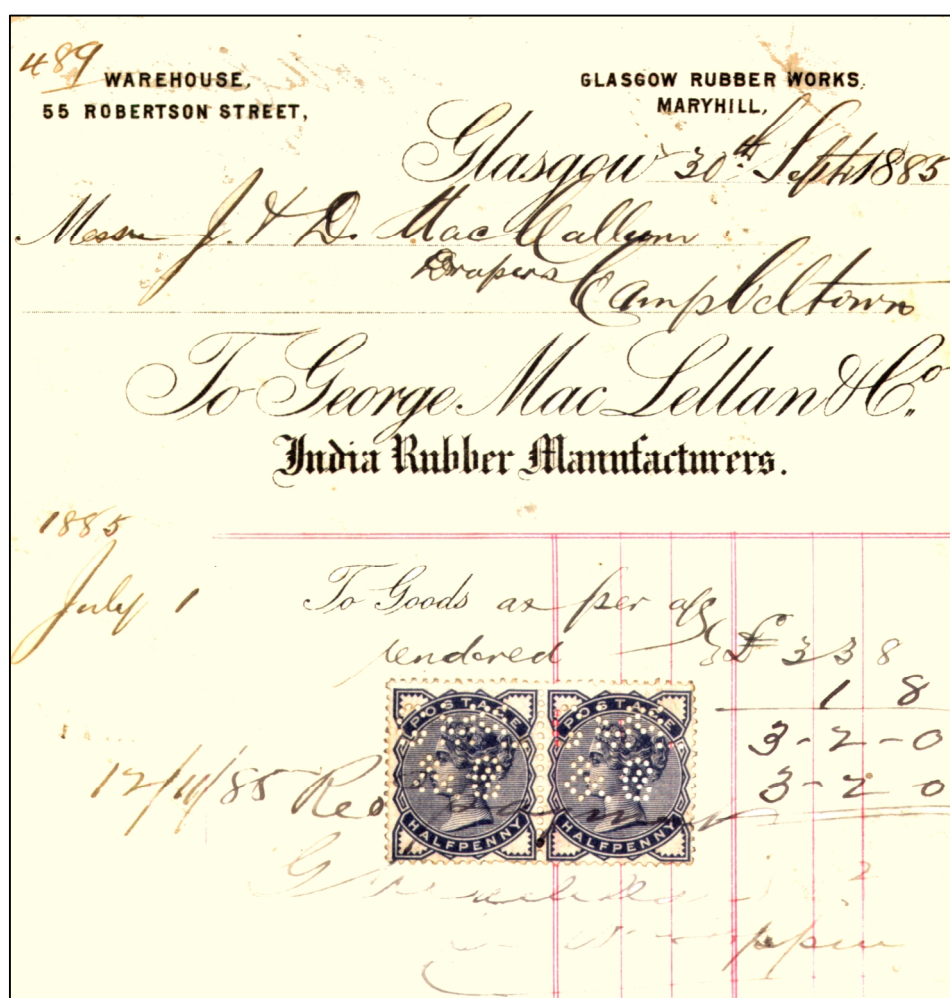 489
WAREHOUSE,
55 ROBERTSON STREET,
GLASGOW RUBBER WORKS,
MARYHILL,
Glasgow 30th Sept 1885
Messrs J. & D. MacCallum
Drapers Campbeltown
To George MacLellan & Co.
India Rubber Manufacturers.
1885
July 1 To Goods as per a/c
rendered £ 3 3 8
1 8
3-2-0
12/11/85 3-2 0
POSTAGE POSTAGE
HALFPENNY HALFPENNY